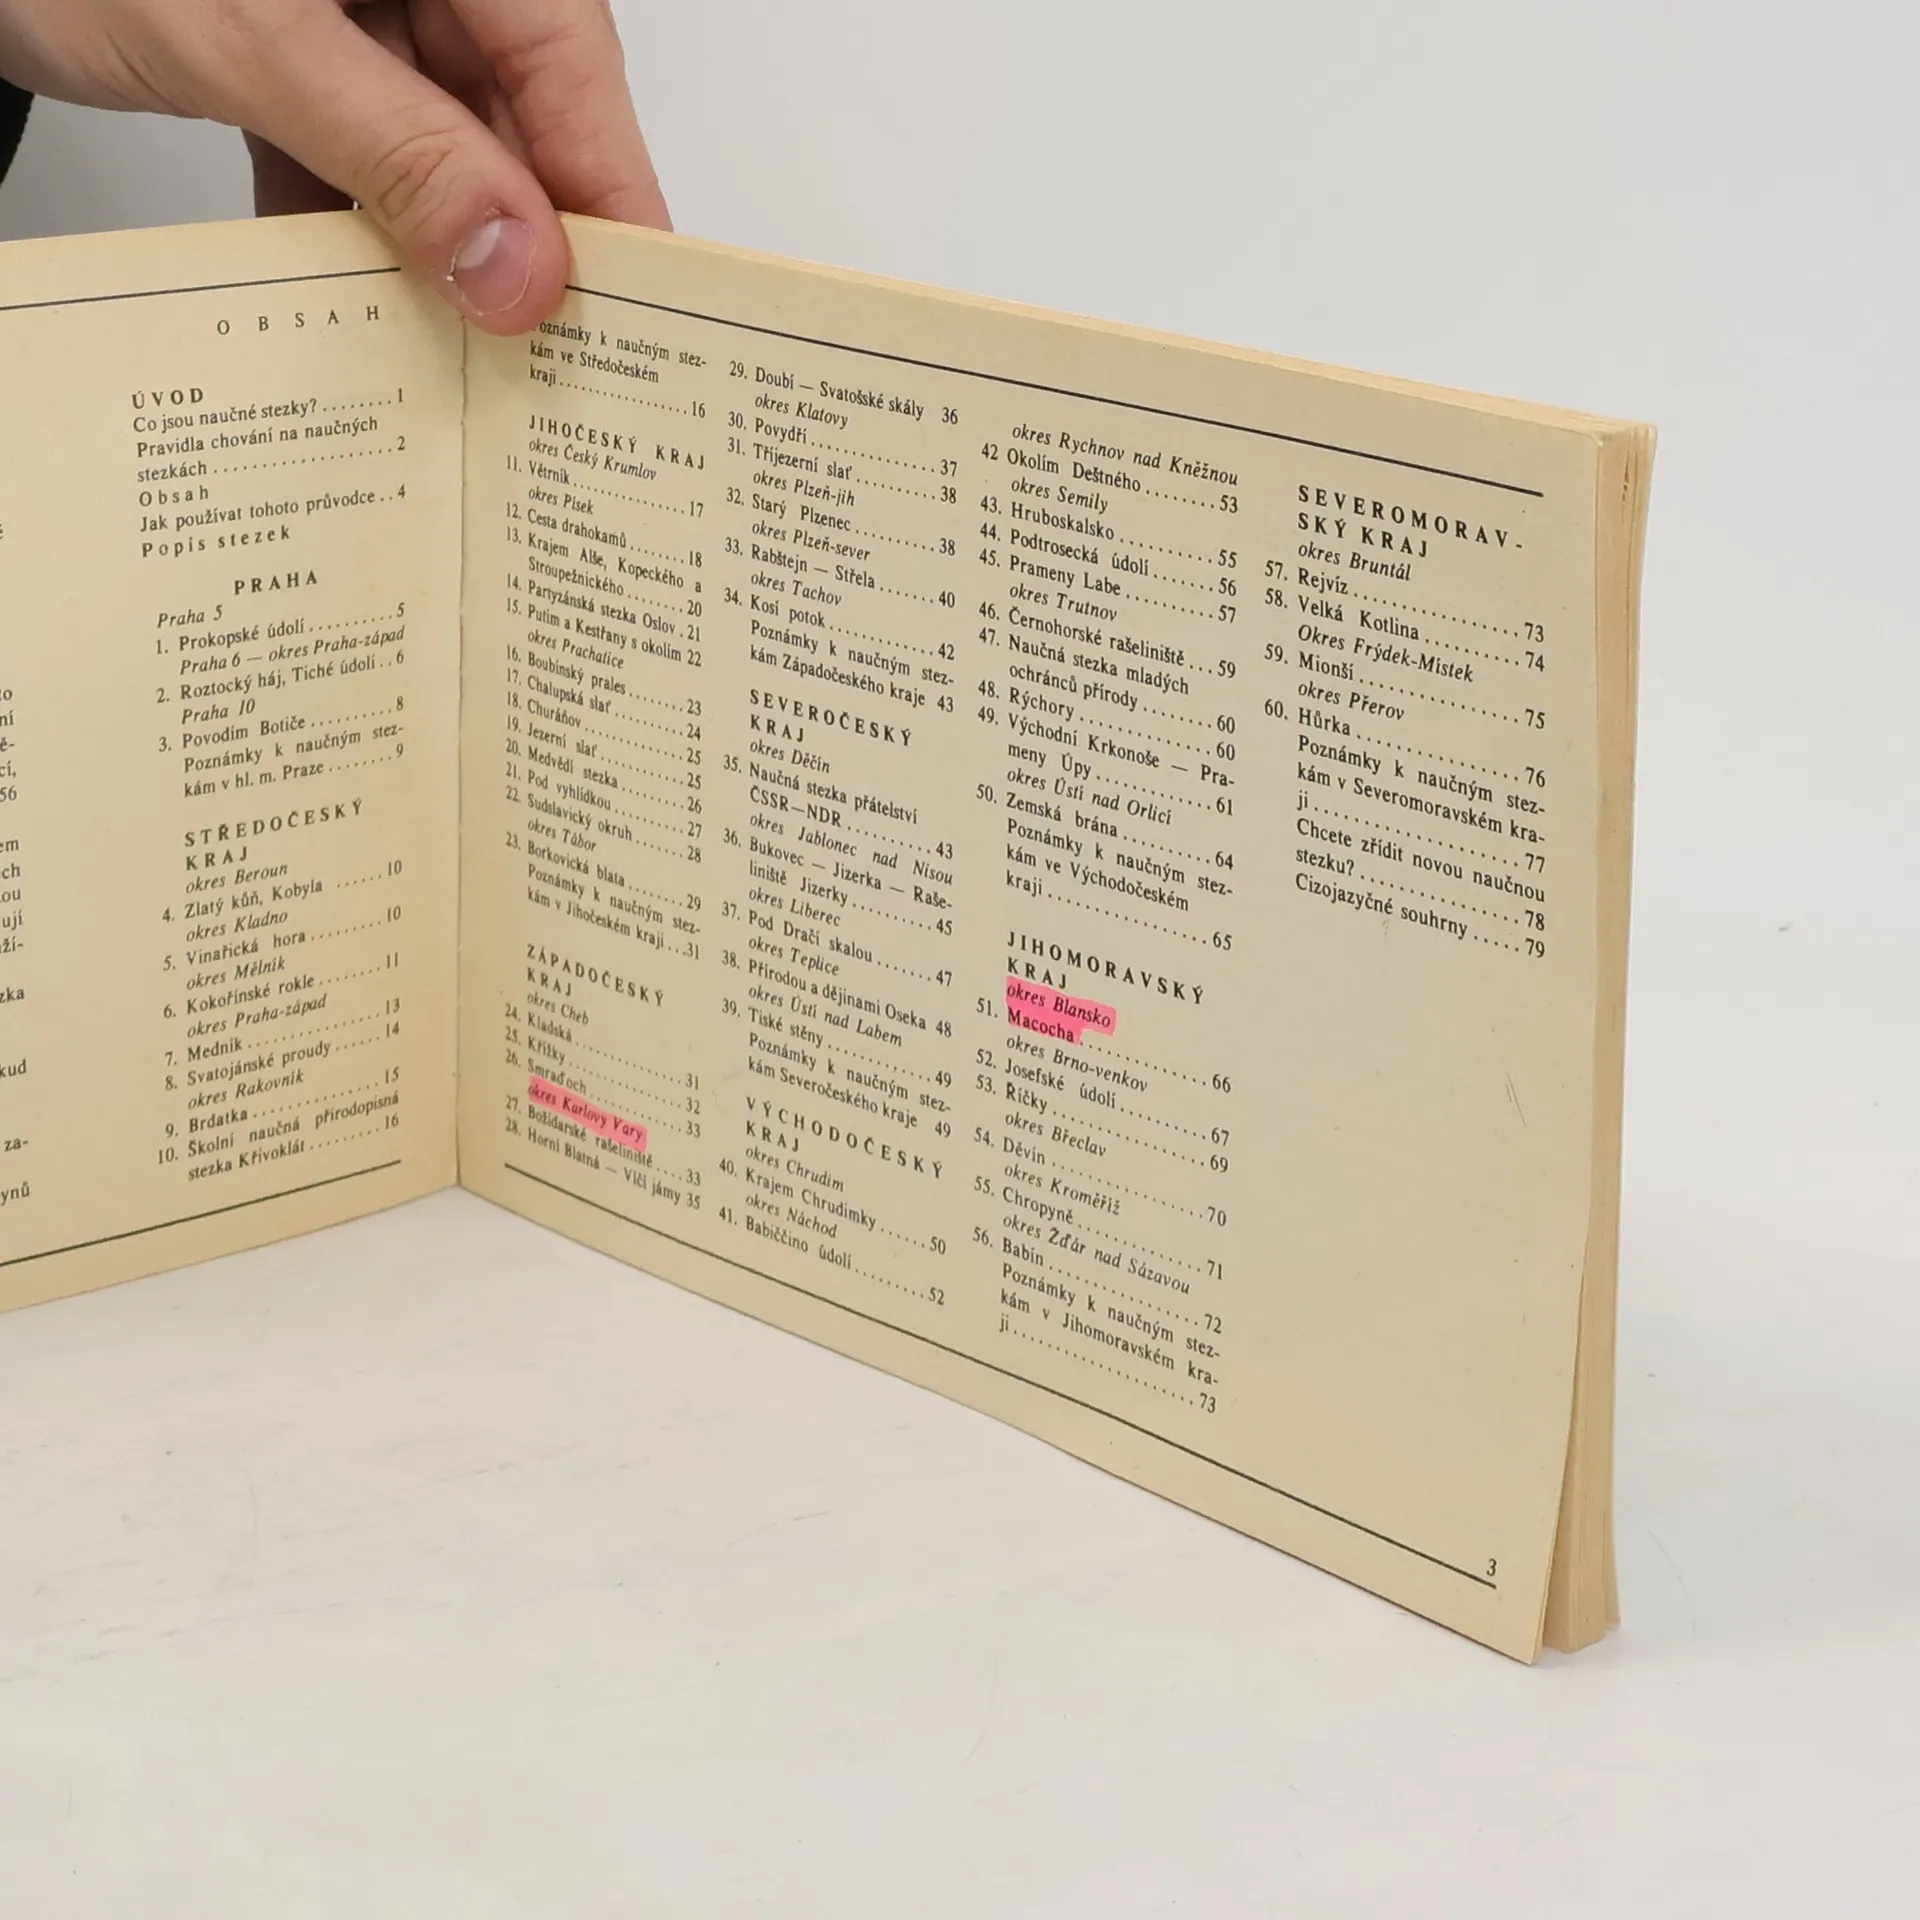 O B S A H
ÚVOD
Co jsou naučné stezky? ........ 1
Pravidla chování na naučných
stezkách .................... 2
Obsah
Jak používat tohoto průvodce .. 4
Popis stezek
PRAHA
Praha 5
1. Prokopské údolí .......... 5
Praha 6 — okres Praha-západ
2. Roztocký háj, Tiché údolí .. 6
Praha 10
3. Povodím Botiče .......... 8
Poznámky k naučným stez-
kám v hl. m. Praze ........ 9
STŘEDOČESKÝ
KRAJ
okres Beroun
4. Zlatý kůň, Kobyla ...... 10
okres Kladno
5. Vinařická hora .......... 10
okres Mělník
6. Kokořínské rokle ........ 11
okres Praha-západ
7. Medník .................. 13
8. Svatojánské proudy ...... 14
okres Rakovník
9. Brdatka .................. 15
10. Školní naučná přírodopisná
stezka Křivoklát .......... 16
oznámky k naučným stez-
kám ve Středočeském
kraji .................. 16
JIHOČESKÝ KRAJ
okres Český Krumlov
11. Větrník .............. 17
okres Písek
12. Cesta drahokamů ........ 18
13. Krajem Alše, Kopeckého a
Stroupežnického ........ 20
14. Partyzánská stezka Oslov . 21
15. Putim a Kestřany s okolím 22
okres Prachatice
16. Boubínský prales ........ 23
17. Chalupská slať .......... 24
18. Churáňov .............. 25
19. Jezerní slať ............ 25
20. Medvědí stezka .......... 26
21. Pod vyhlídkou .......... 27
22. Sudslavický okruh ...... 28
okres Tábor
23. Borkovická blata ........ 29
Poznámky k naučným stez-
kám v Jihočeském kraji ... 31
ZÁPADOČESKÝ
KRAJ
okres Cheb
24. Kladská .............. 31
25. Křížky ................ 32
26. Smraďoch .............. 33
okres Karlovy Vary
27. Božídarské rašeliniště .... 33
28. Horní Blatná — Vlčí jámy 35
29. Doubí — Svatošské skály 36
okres Klatovy
30. Povydří .............. 37
31. Tříjezerní slať .......... 38
okres Plzeň-jih
32. Starý Plzenec .......... 38
okres Plzeň-sever
33. Rabštejn — Střela ...... 40
okres Tachov
34. Kosí potok ............ 42
Poznámky k naučným stez-
kám Západočeského kraje 43
SEVEROČESKÝ
KRAJ
okres Děčín
35. Naučná stezka přátelství
ČSSR—NDR .......... 43
okres Jablonec nad Nisou
36. Bukovec — Jizerka — Raše-
liniště Jizerky .......... 45
okres Liberec
37. Pod Dračí skalou ...... 47
okres Teplice
38. Přírodou a dějinami Oseka 48
okres Ústí nad Labem
39. Tiské stěny .......... 49
Poznámky k naučným stez-
kám Severočeského kraje 49
VÝCHODOČESKÝ
KRAJ
okres Chrudim
40. Krajem Chrudimky ...... 50
okres Náchod
41. Babiččino údolí ........ 52
okres Rychnov nad Kněžnou
42 Okolím Deštného ........ 53
okres Semily
43. Hruboskalsko .......... 55
44. Podtrosecká údolí ...... 56
45. Prameny Labe .......... 57
okres Trutnov
46. Černohorské rašeliniště ... 59
47. Naučná stezka mladých
ochránců přírody ........ 60
48. Rýchory .............. 60
49. Východní Krkonoše — Pra-
meny Úpy .............. 61
okres Ústí nad Orlicí
50. Zemská brána .......... 64
Poznámky k naučným stez-
kám ve Východočeském
kraji .................. 65
JIHOMORAVSKÝ
KRAJ
okres Blansko
51. Macocha .............. 66
okres Brno-venkov
52. Josefské údolí .......... 67
53. Říčky ................ 69
okres Břeclav
54. Děvín ................ 70
okres Kroměříž
55. Chropyně .............. 71
okres Žďár nad Sázavou
56. Babín ................ 72
Poznámky k naučným stez-
kám v Jihomoravském kra-
ji .................... 73
SEVEROMORAV-
SKÝ KRAJ
okres Bruntál
57. Rejvíz ................ 73
58. Velká Kotlina .......... 74
Okres Frýdek-Místek
59. Mionší ................ 75
okres Přerov
60. Hůrka ................ 76
Poznámky k naučným stez-
kám v Severomoravském kra-
ji .................... 77
Chcete zřídit novou naučnou
stezku? ................ 78
Cizojazyčné souhrny ..... 79
3